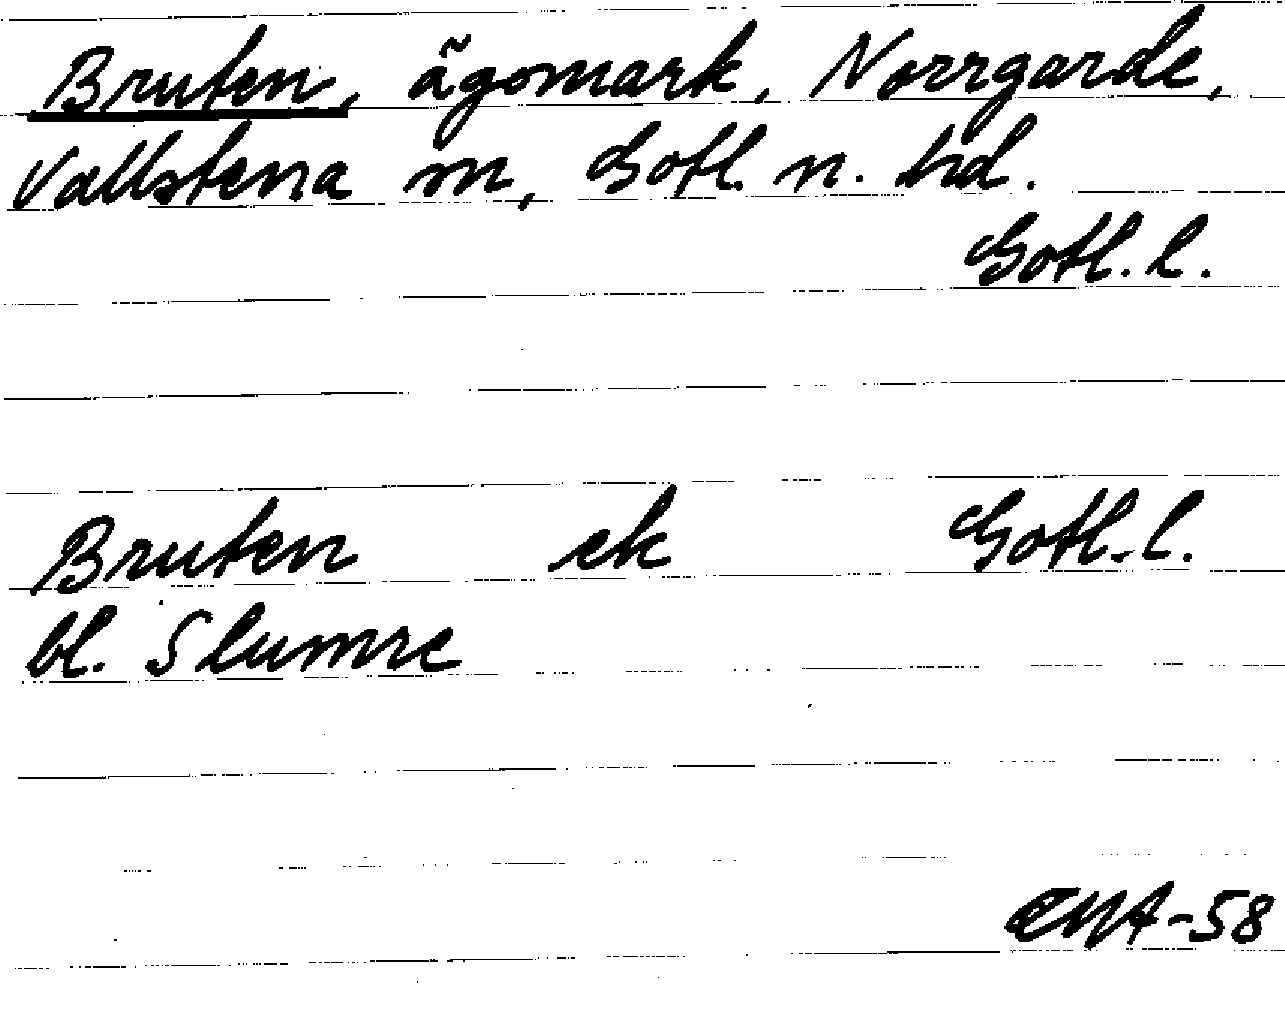 Bruten, ägomark, Norrgarde,
Vallstena sn, Gotl. n. hd.
Gotl. l.
Bruten ek Gotl. l.
bl. Slumre
EMA-58